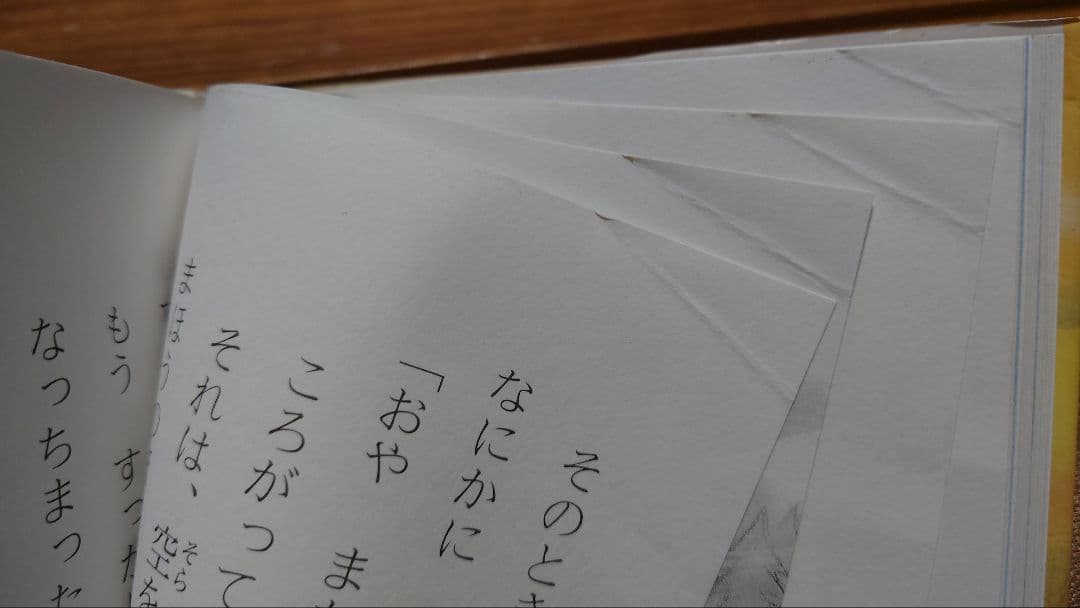 そのとき
なにかに
「おや
ま
ころがって
それは、
空を
そら
もう すっ
なっちまっ